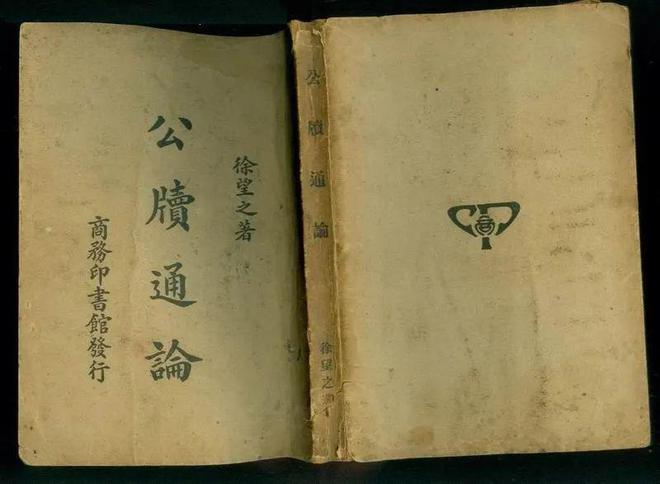 徐望之著
公牘通論
商務印書館發行
公牘通論
徐望之
商